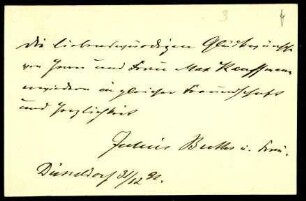 die liebenswürdigen Glückwünsche
von Herrn und Frau Max Kauffmann
erwidern in gleicher Freundschaft
und Herzlichkeit
Julius Buths u. Frau.
Düsseldorf 31/12 92.